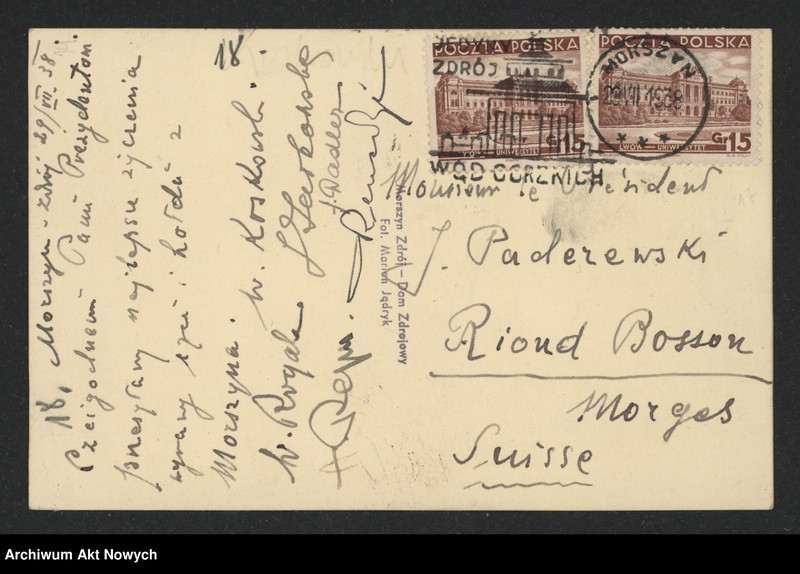 18.
18, Morszyn-Zdrój 29/VII. 38.
Czcigodnemu Panu Prezydentowi
przesyłamy najlepsze życzenia
wyrazy czci i hołdu z
Morszyna.
W. Koskowski
W. Rogala
J. Nadler
Morszyn Zdrój – Dom Zdrojowy
Fot. Marjan Jędryk
POCZTA POLSKA
LWÓW – UNIWERSYTET
Gr 15
POCZTA POLSKA
LWÓW – UNIWERSYTET
Gr 15
ZDRÓJ
WÓD GORZKICH
MORSZYN
29.VII.1938
Monsieur le Président
J. Paderewski
Riond Bosson
Morges
Suisse
Archiwum Akt Nowych